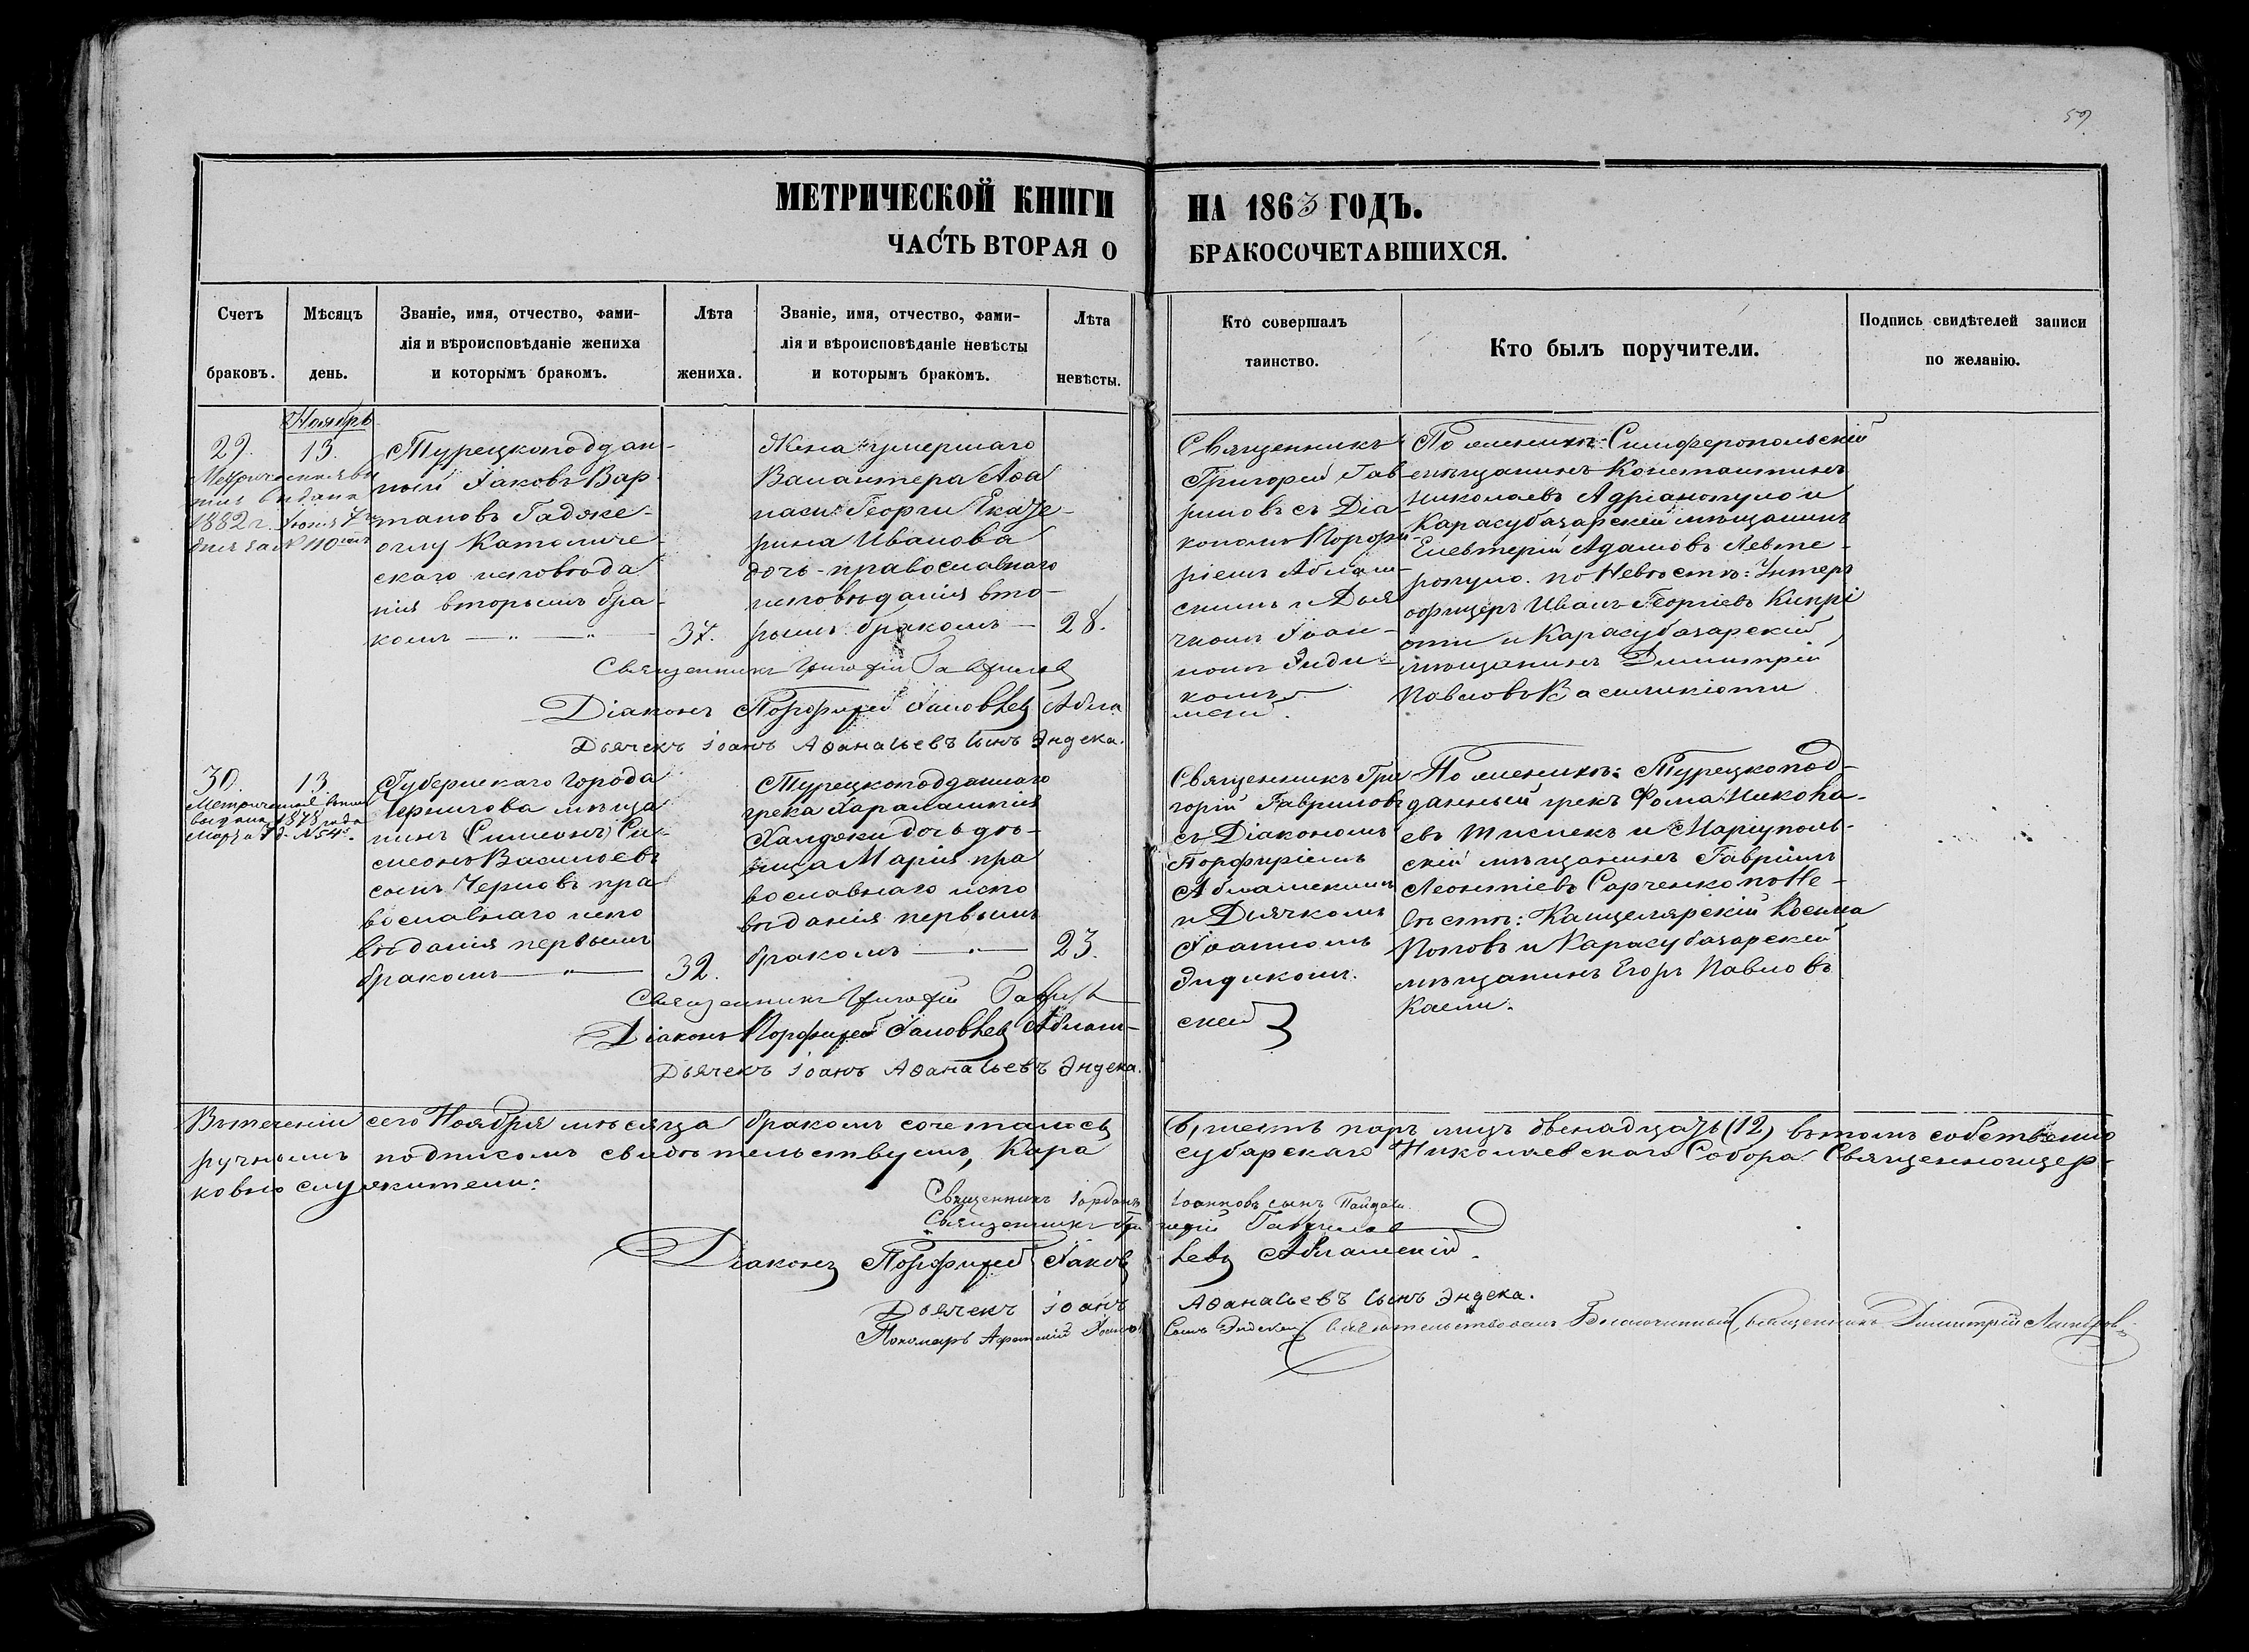 59
МЕТРИЧЕСКОЙ КНИГИ НА 1863 ГОДЪ.
ЧАСТЬ ВТОРАЯ О БРАКОСОЧЕТАВШИХСЯ.
Счетъ браковъ.
Мѣсяцъ день.
Званіе, имя, отчество, фами-
лія и вѣроисповѣданіе жениха
и которымъ бракомъ.
Лѣта жениха.
Званіе, имя, отчество, фами-
лія и вѣроисповѣданіе невѣсты
и которымъ бракомъ.
Лѣта невѣсты.
Кто совершалъ
таинство.
Кто былъ поручители.
Подпись свидѣтелей записи
по желанію.
Ноябрь
29. 13.
1882 г. Іюня 7
дня за № 110
Турецкоподдан-
ный Іаковъ Вар
тановъ Гадже-
оглу Католиче-
скаго исповѣда
нія вторымъ бра-
комъ
37.
Жена умершаго
Валантера Аѳа
наси Георги Екате-
рина Иванова
дочь - православнаго
исповѣданія вто-
рымъ бракомъ
28.
Священникъ
Григорій Гав
риловъ съ Діа-
кономъ Порфи-
ріемъ Аблам-
скимъ и Дья
чкомъ Іоан-
номъ Энди-
комъ
По женихѣ: Симферопольскій
мѣщанинъ Константинъ
Николаевъ Адріанопуло и
Карасубазарскій мѣщанинъ
Елевтерій Адамовъ Левте-
ропуло. по Невѣстѣ: Унтеръ
офицеръ Иванъ Георгіевъ Кипрі
оти и Карасубазарскій
мѣщанинъ Димитрій
Павловъ Василикіоти
Священникъ Григорій Гавриловъ
Діаконъ Порфирій Іаковлевъ Аблам
скій.
Дьячекъ Іоанъ Аѳанасьевъ сынъ Эндека.
30. 13.
Метрической выпись
выдана 1878 года
Марта 7 д. № 54.
Губернскаго города
Чернигова мѣща
нинъ Симеонъ Си-
меонъ Васильевъ
сынъ Черновъ пра
вославнаго испо
вѣданія первымъ
бракомъ
32.
Турецкоподданнаго
грека Харалампія
Халджи дочь дѣ-
вица Марія пра
вославнаго испо
вѣданія первымъ
бракомъ
23.
Священникъ Гри
горій Гавриловъ
съ Діакономъ
Порфиріемъ
Абламскимъ
и Дьячкомъ
Іоанномъ
Эндикомъ.
По женихѣ: Турецкопод-
данный грекъ Фома Никола-
евъ и Маріуполь-
скій мѣщанинъ Гавріилъ
Леонтіевъ Сарченко по Не-
вѣстѣ: Канцелярскій Косьма
Поповъ и Карасубазарскій
мѣщанинъ Егоръ Павловъ
Каели.
Священникъ Григорій Гаврилъ
Діаконъ Порфирій Іаковлевъ Аблам-
скій
Дьячекъ Іоанъ Аѳанасьевъ Эндека.
Въ теченіи сего Ноября мѣсяца бракомъ сочеталось 6, шесть паръ лицъ двенадцать (12) въ томъ собственно
ручнымъ подписомъ свидѣтельствуемъ, Кара субарскаго Николаевскаго Собора Священноицер-
ковно служители:
Священникъ Іорданъ Іоанновъ сынъ
Священникъ Григорій Гавриловъ
Діаконъ Порфирій Іаковлевъ Абламскій.
Дьячекъ Іоанъ Аѳанасьевъ сынъ Эндека.
Пономарь сынъ Эндека
Свидѣтельствовалъ Благочинный священникъ Димитрій